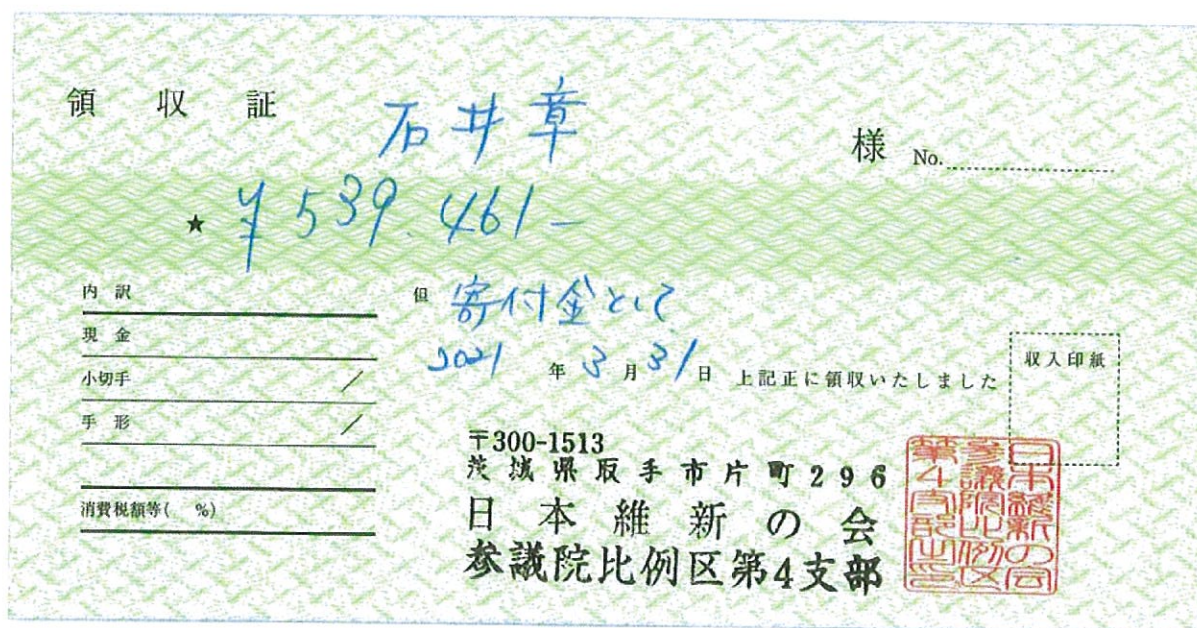 領 収 証 石井章 様 No.
★ ¥539.461-
内 訳
現 金
小切手 /
手 形 /
消費税額等( %)
但 寄付金として
2021 年 3 月 31 日 上記正に領収いたしました
収入印紙
〒300-1513
茨城県取手市片町296
日本維新の会
参議院比例区第4支部
日本維新の会
参議院比例区
第4支部之印